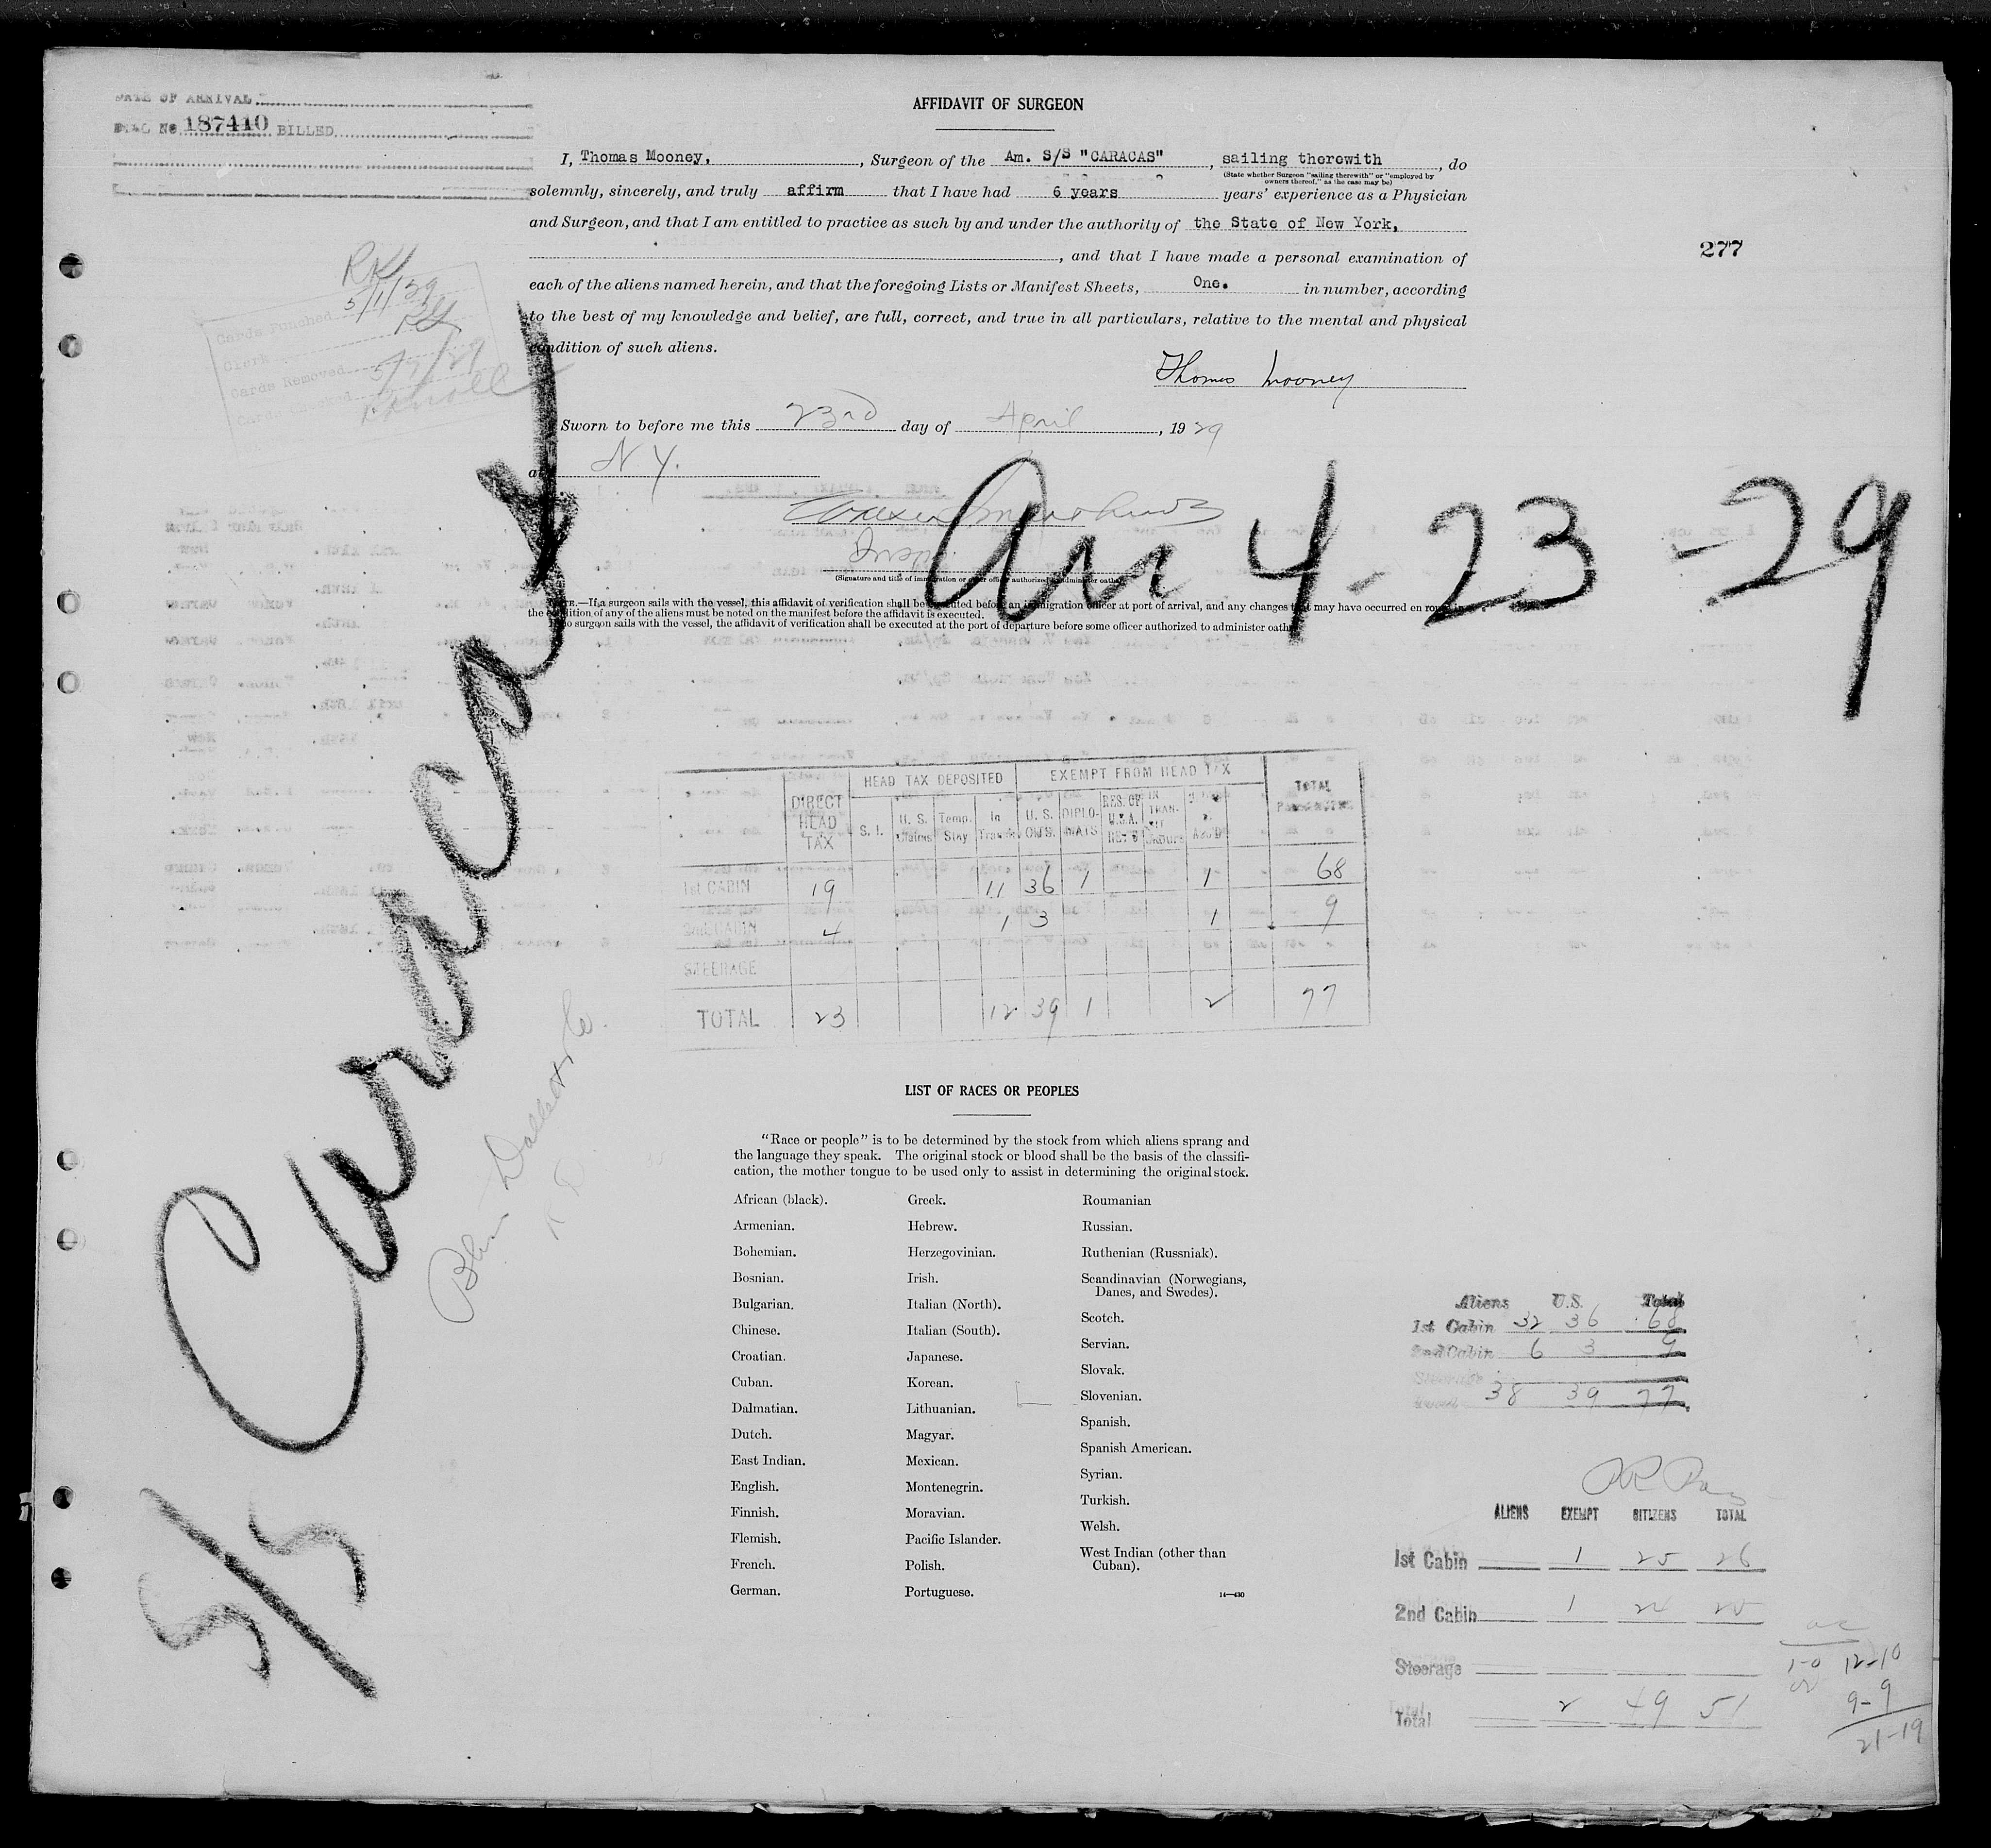 DATE OF ARRIVAL
187410 BILLED
AFFIDAVIT OF SURGEON
I, Thomas Mooney, , Surgeon of the Am. S/S "CARACAS" , sailing therewith , do
(State whether Surgeon "sailing therewith" or "employed by
owners thereof," as the case may be)
solemnly, sincerely, and truly affirm that I have had 6 years years' experience as a Physician
and Surgeon, and that I am entitled to practice as such by and under the authority of the State of New York,
, and that I have made a personal examination of
each of the aliens named herein, and that the foregoing Lists or Manifest Sheets, One. in number, according
to the best of my knowledge and belief, are full, correct, and true in all particulars, relative to the mental and physical
condition of such aliens.
Thomas Mooney
Sworn to before me this 23rd day of April , 19 29
at N Y.
277
Cards Punched 5/1/29
Clerk
Cards Removed 5/7/29
Arr 4-23-29
(Signature and title of immigration or other officer authorized to administer oaths)
NOTE.—If a surgeon sails with the vessel, this affidavit of verification shall be executed before an immigration officer at port of arrival, and any changes that may have occurred en route in
the condition of any of the aliens must be noted on the manifest before the affidavit is executed.
If no surgeon sails with the vessel, the affidavit of verification shall be executed at the port of departure before some officer authorized to administer oaths.
S/S Caracas
HEAD TAX DEPOSITED EXEMPT FROM HEAD TAX
DIRECT HEAD TAX S. I. U. S. Claims Temp. Stay In Transit U. S. DIPLOMATS RES. OF U.S.A. IN TRANSIT TOTAL
1st CABIN 19 11 36 1 1 68
2nd CABIN 4 1 3 1 9
STEERAGE
TOTAL 23 12 39 1 2 77
LIST OF RACES OR PEOPLES
"Race or people" is to be determined by the stock from which aliens sprang and
the language they speak. The original stock or blood shall be the basis of the classifi-
cation, the mother tongue to be used only to assist in determining the original stock.
African (black).
Armenian.
Bohemian.
Bosnian.
Bulgarian.
Chinese.
Croatian.
Cuban.
Dalmatian.
Dutch.
East Indian.
English.
Finnish.
Flemish.
French.
German.
Greek.
Hebrew.
Herzegovinian.
Irish.
Italian (North).
Italian (South).
Japanese.
Korean.
Lithuanian.
Magyar.
Mexican.
Montenegrin.
Moravian.
Pacific Islander.
Polish.
Portuguese.
Roumanian
Russian.
Ruthenian (Russniak).
Scandinavian (Norwegians,
Danes, and Swedes).
Scotch.
Servian.
Slovak.
Slovenian.
Spanish.
Spanish American.
Syrian.
Turkish.
Welsh.
West Indian (other than
Cuban).
14—430
Aliens U.S. Total
1st Cabin 32 36 68
2nd Cabin 6 3 9
Steerage
38 39 77
ALIENS EXEMPT CITIZENS TOTAL
1st Cabin 1 25 26
2nd Cabin 1 24 25
Steerage
Total 2 49 51
1-0 12-10
9-9
21-19